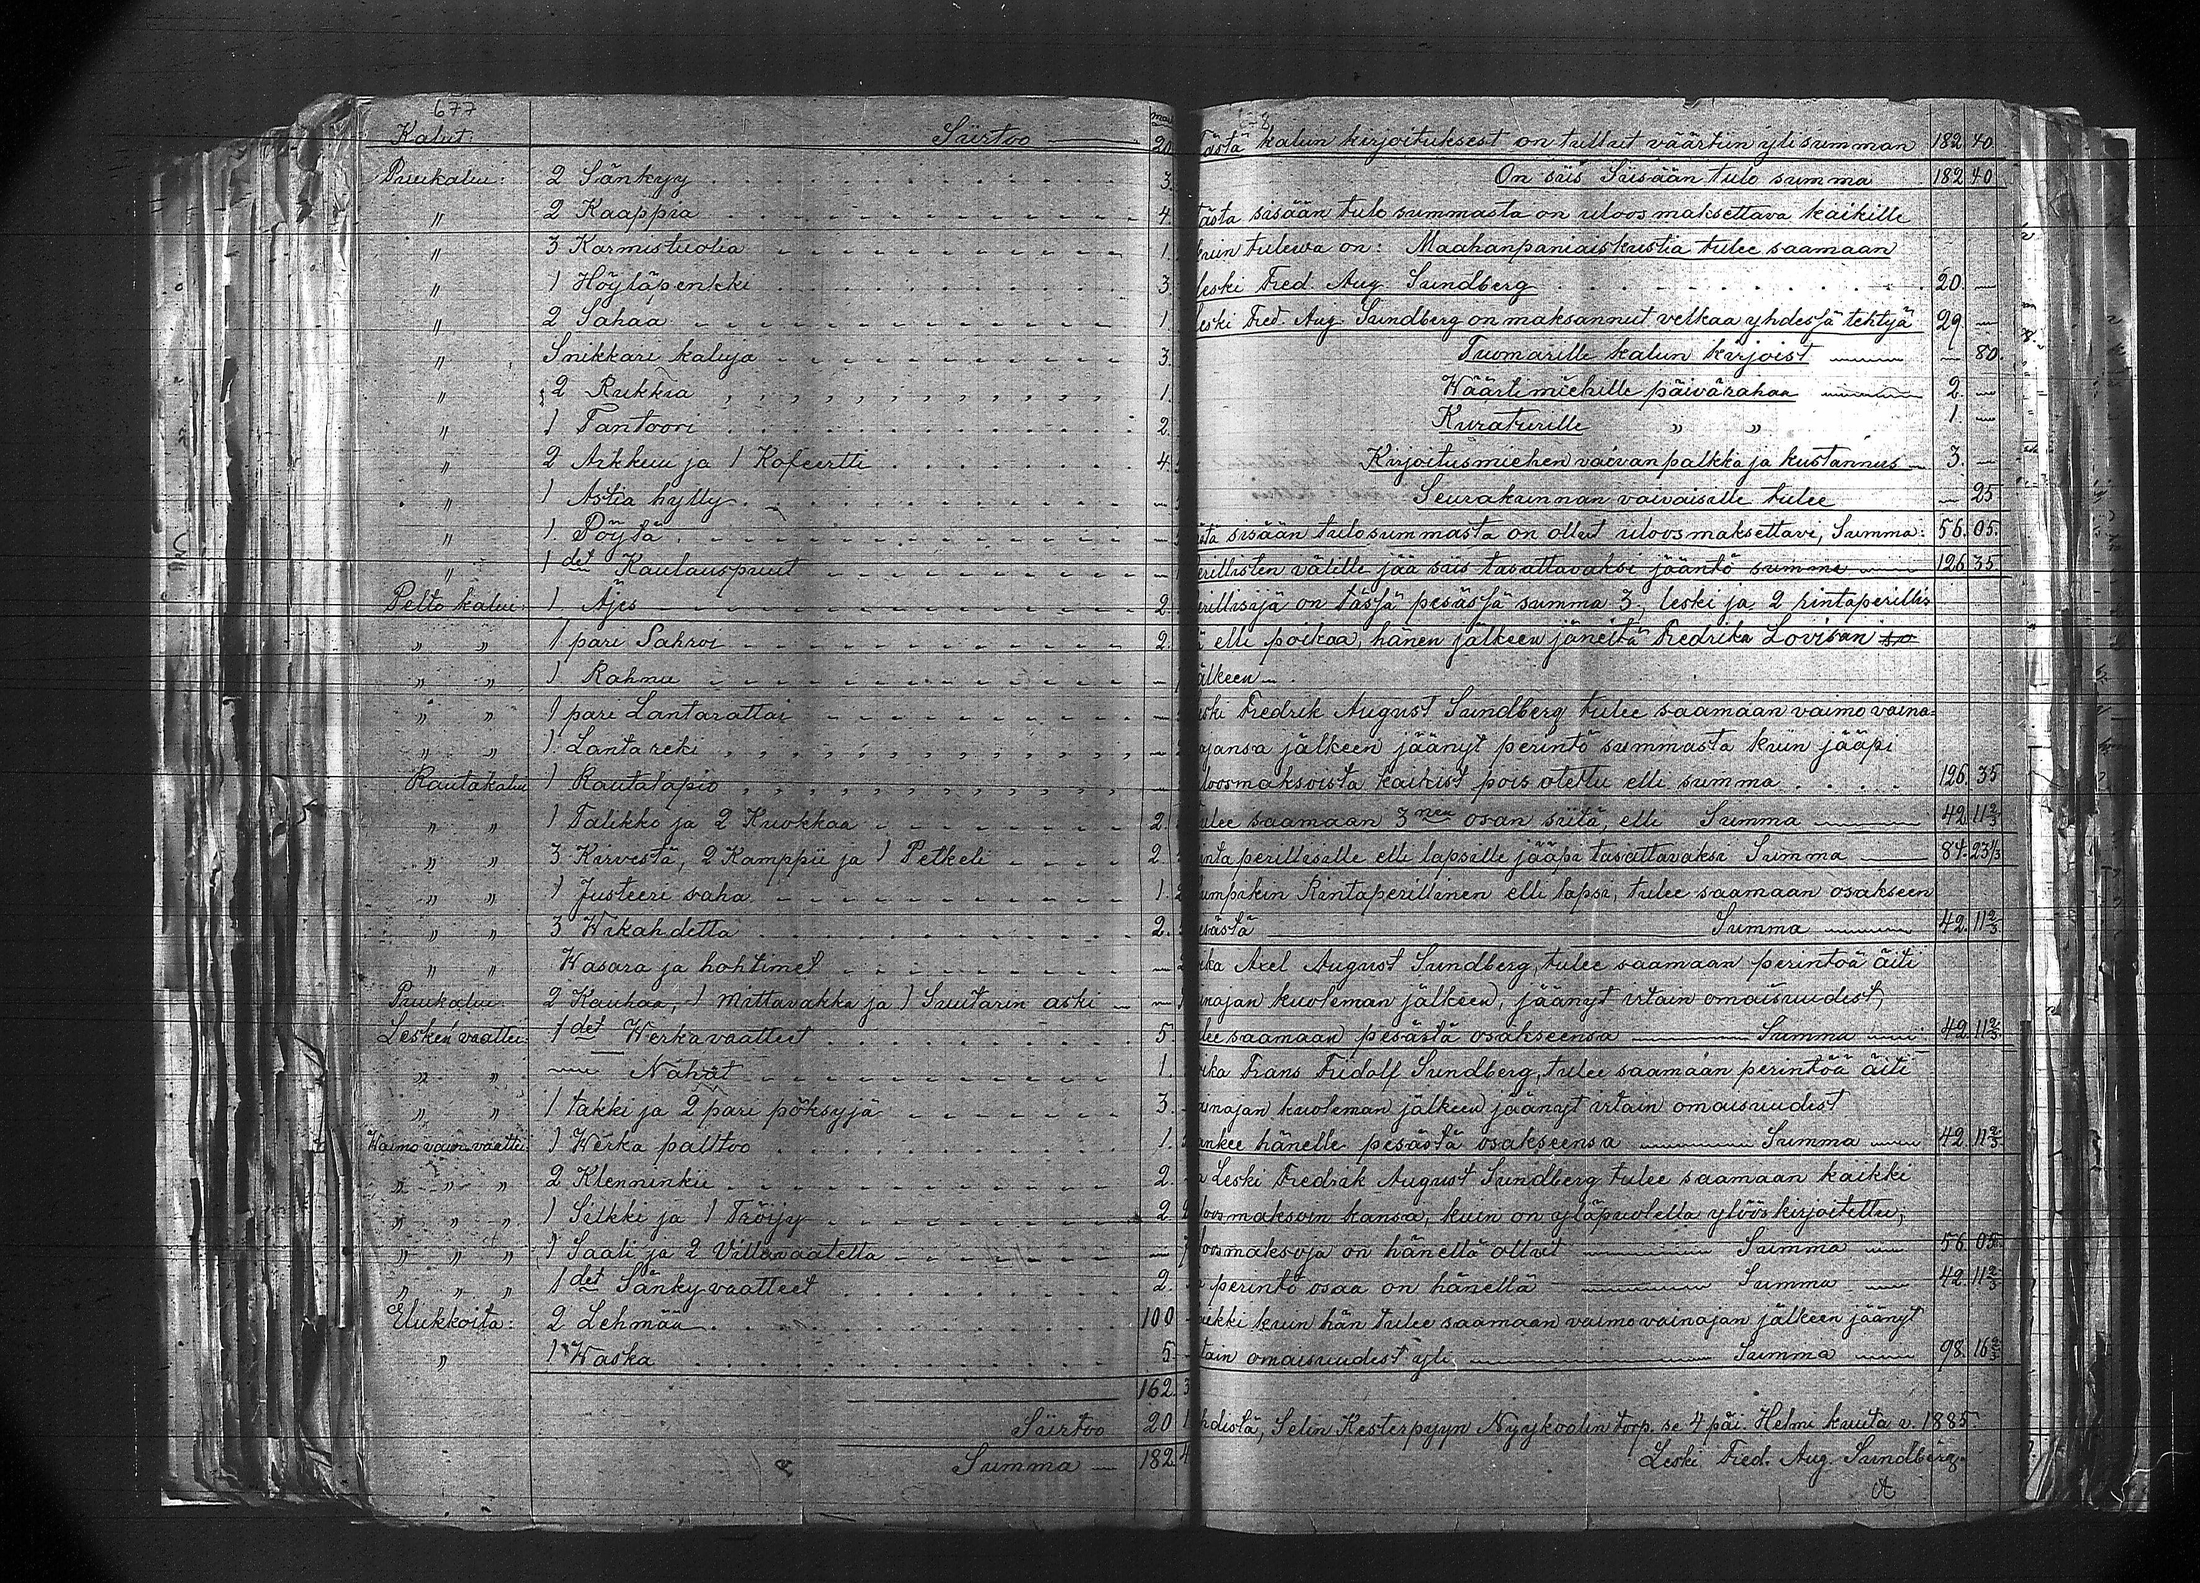 677
Kalut. Siirtoo 20
Puukalu: 2 Sänkyy 3.
" 2 Kaappia 4.
" 3 Karmistuolia 1.
" 1 Höyläpenkki 3.
" 2 Sahaa 1.
" Snikkari kaluja 3.
" 2 Rukkia 1.
" 1 Tantoori 2.
" 2 Arkkuu ja 1 Kofeertti 4.
" 1 Astia hylly
" 1. Pöytä
" 1 det Kaulauspuut
Pelto kalui: 1. Äjes 2.
" " 1 pari Sahroi 2.
" " 1 Rahnu
" " 1 pari Lantarattai
" " 1. Lantareki
Rautakalui 1 Rautalapio
" " 1 Talikko ja 2 Kuokkaa 2.
" " 3 Kirvestä, 2 Kamppii ja 1 Petkeli 2.
" " 1 Justeeri saha 1.
" " 3 Wikahdetta 2.
" " Wasara ja hohtimet
Puukalui 2 Kauhaa, 1 Mittavakka ja 1 Suutarin aski
Lesken vaattei 1 det Werkavaatteet 5
" " Nahat 1.
" " 1 takki ja 2 pari pöksyjä 3.
Waimo vain. vaattei 1 Werka palttoo 1.
" " " 2 Klenninkii 2.
" " " 1 Silkki ja 1 Tröijy 2
" " " 1 Saali ja 2 Villavaatetta
" " " 1 det Sänkyvaatteet 2.
Elukkoita: 2 Lehmää 100
" 1 Waska 5
162 3
Siirtoo 20 1
Summa 182 4
tästä kalun kirjoituksest on tullut väärtin ylisumman 182. 40.
On siis Siisään tulo summa 182 40
tästa sisään tulo summasta on uloos maksettava kaikille
kuin tulewa on: Maahanpaniaiskustia tulee saamaan
leski Fred. Aug. Sundberg 20.
leski Fred. Aug. Sundberg on maksannut velkaa yhdessä tehtyä 29
Tuomarille kalun kirjoist 80.
Wäärtimiehille päivärahaa 2.
Kuraturille " " 1.
Kirjoitusmiehen vaivanpalkka ja kustannus 3.
Seurakunnan vaivaisille tulee 25
sisään tulosummasta on ollut uloosmaksettavi, Summa: 56. 05.
perillisten välille jää siis tasattavaksi jääntö summa 126 35
perillisijä on tässä pesässä summa 3, leski ja 2 rintaperillis
elli poikaa, hänen jälkeen jäneitä Fredrika Lovisan
jälkeen.
leski Fredrik August Sundberg tulee saamaan vaimo vaina-
jansa jälkeen jäänyt perintö summasta kuin jääpi
uloosmaksoista kaikist pois olettu elli summa 126. 35
tulee saamaan 3 nen osan siitä, elli Summa 42. 11 2/3
rinta perillisille elli lapsille jääpi tasattavaksi Summa 84. 23 1/3
kumpikin Rintaperillinen elli lapsi, tulee saamaan osakseen
pesästä Summa 42. 11 2/3
Axel August Sundberg, tulee saamaan perintöä äiti
vainajan kuoleman jälkeen, jäänyt irtain omaisuudest,
tulee saamaan pesästä osakseensa Summa 42 11 2/3
Frans Fridolf Sundberg, tulee saamaan perintöä äiti
vainajan kuoleman jälkeen jäänyt irtain omaisuudest
lankee hänelle pesästä osakseensa Summa 42. 11 2/3
Leski Fredrik August Sundberg tulee saamaan kaikki
uloosmaksoin kansa, kuin on yläpuolella ylöös kirjoitettu,
uloosmaksoja on hänellä ollut Summa 56. 05.
perintö osaa on hänellä Summa 42. 11 2/3
kaikki kuin hän tulee saamaan vaimo vainajan jälkeen jäänyt
irtain omaisuudest yli Summa 98. 16 2/3
Kesterpyyn Nyykoolin torp. se 4 päi. Helmi kuuta v. 1885
Leski Fred. Aug. Sundberg.